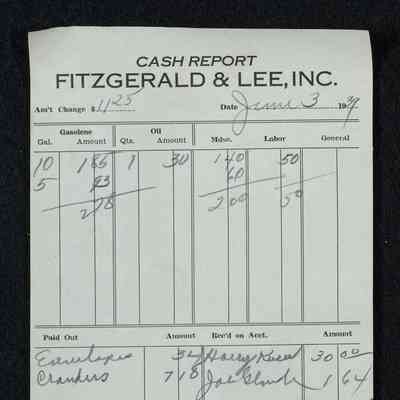 CASH REPORT
FITZGERALD & LEE, INC.
Am't Change $ 11 25 Date June 3 19
Gasolene Oil Mdse. Labor General
Gal. Amount Qts. Amount
10 1 85 1 30 1 40 50
5 93 60
2 78 2 00 50
Paid Out Amount Rec'd on Acct. Amount
Envelopes 32 Harry 30 00
7 18 Joe 1 64